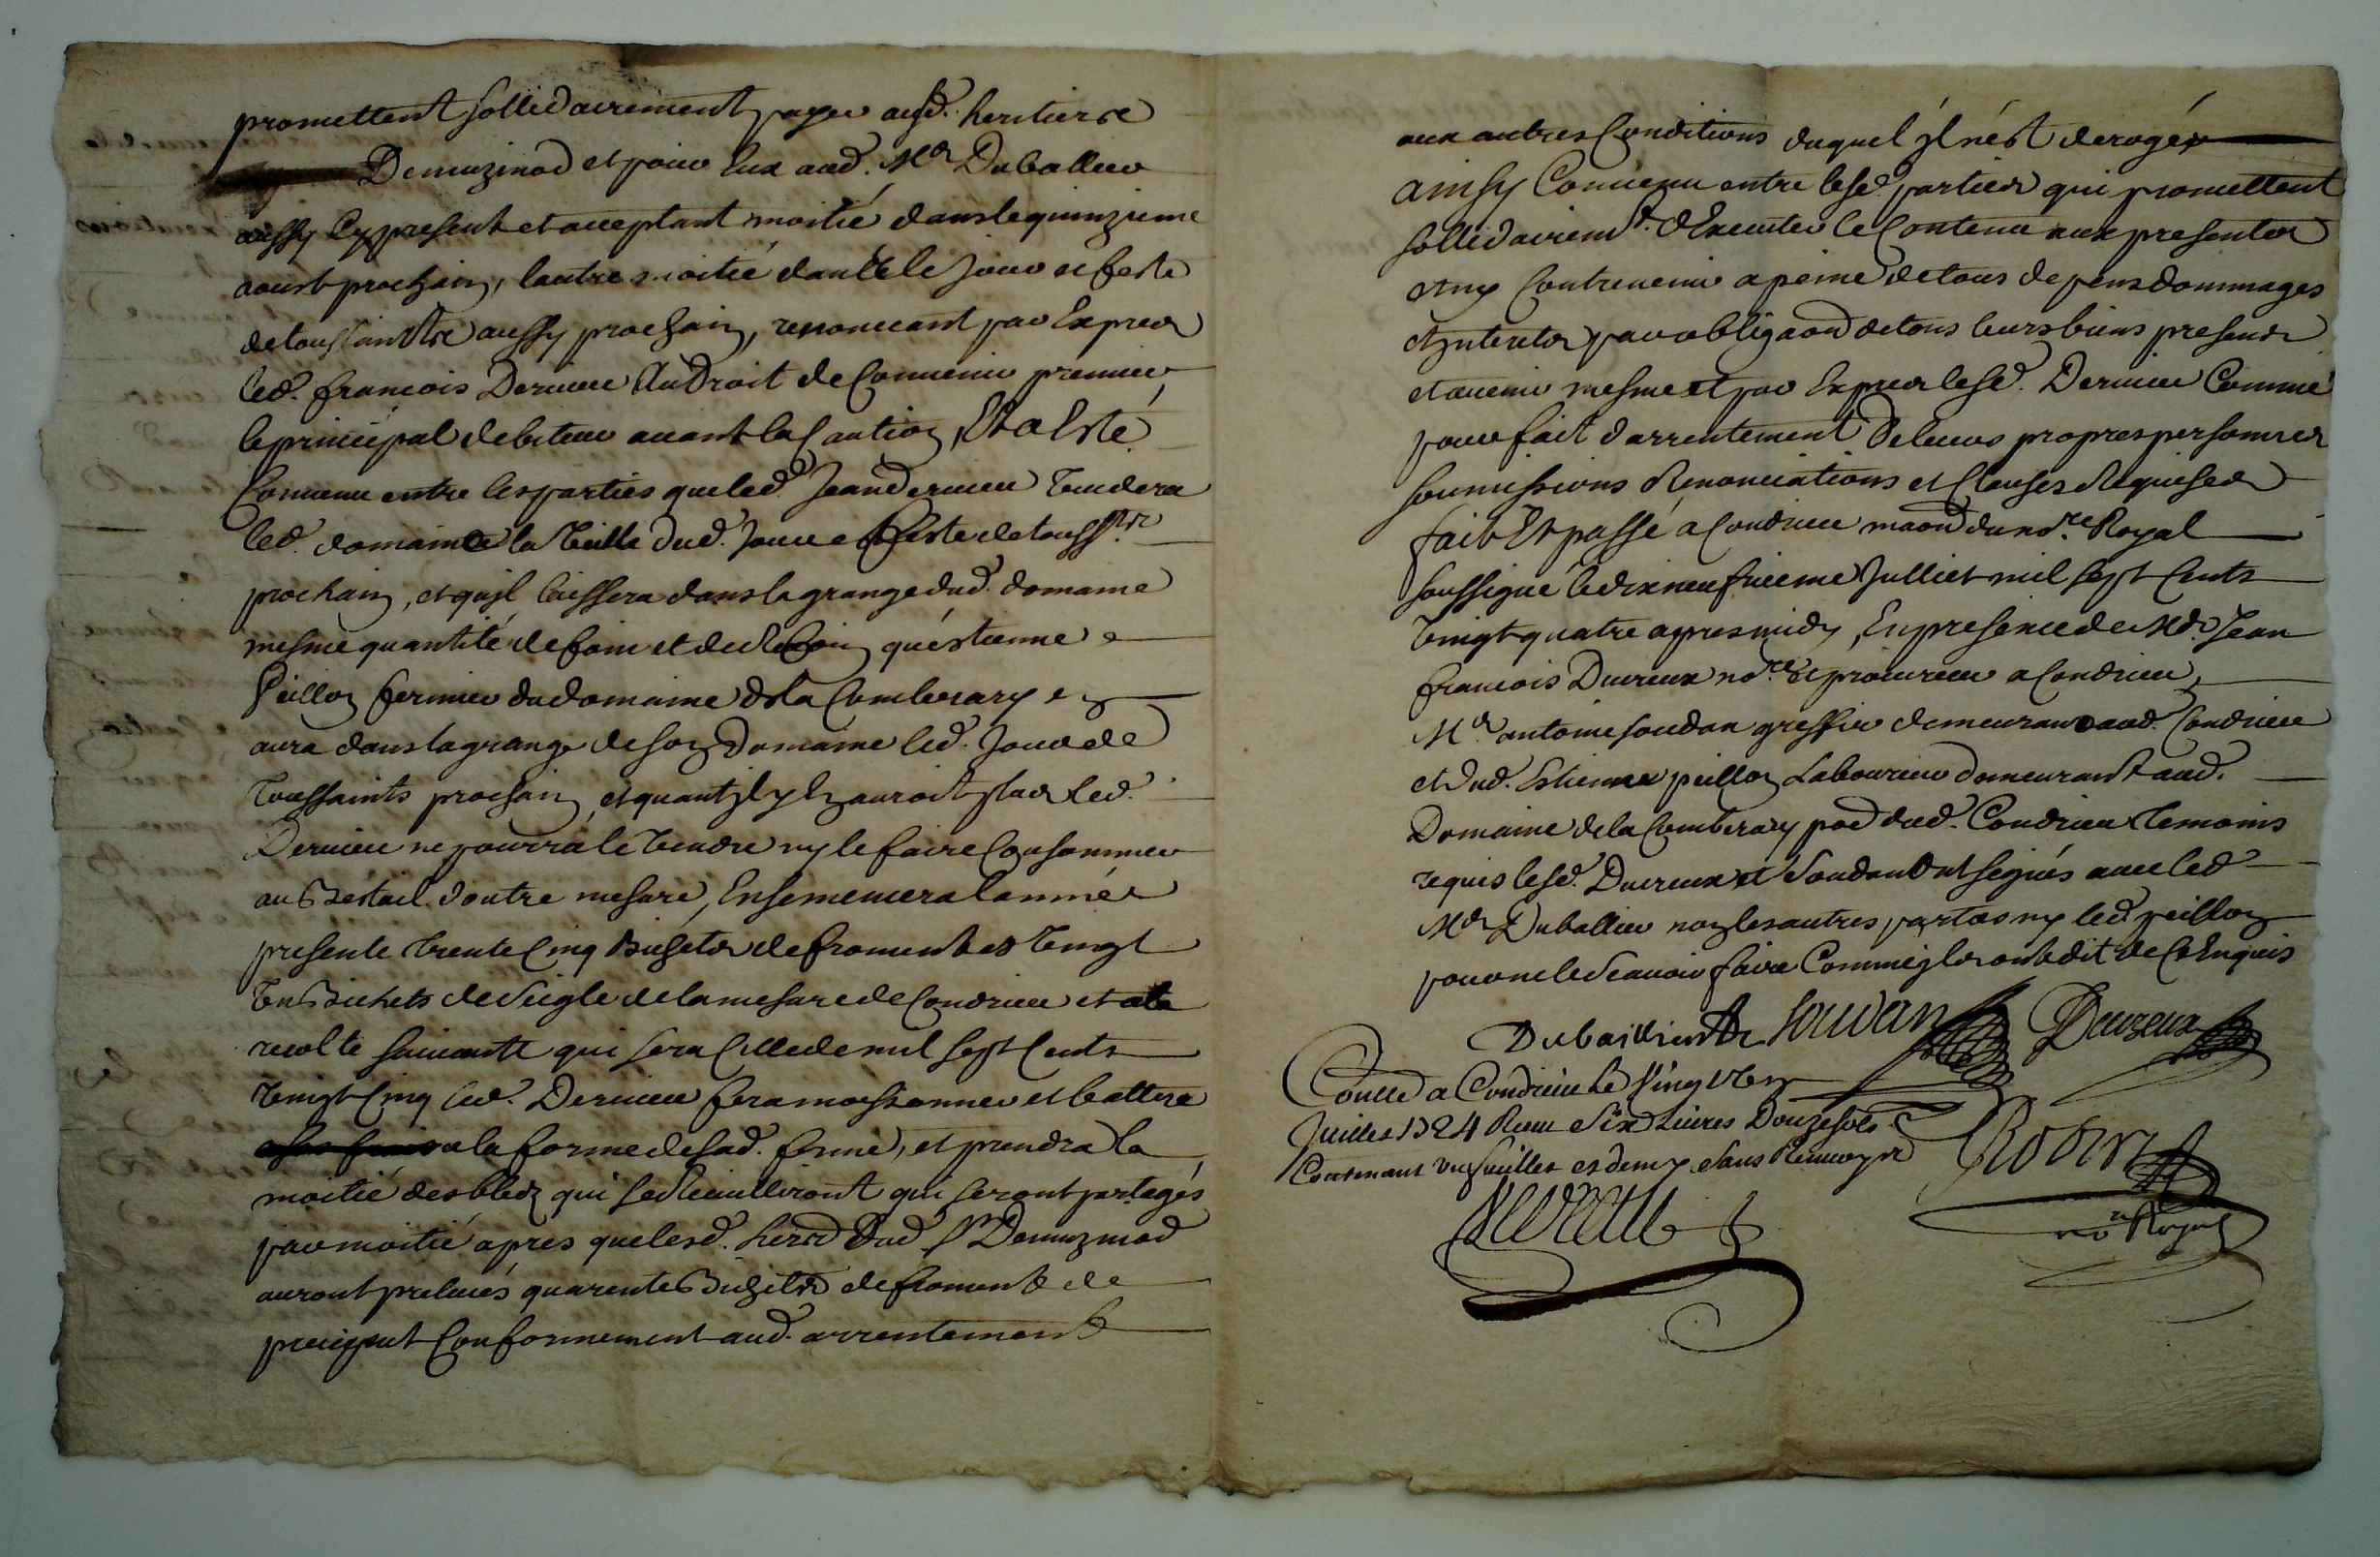 promettent sollidairement payer ausd. heritiers
Demuzinod et pour Eux aud. Mr Duballier
aussy Cy present et acceptant moitié dans le quinzieme
aoust prochain, lautre moitié dans le Jour et feste
de toussaintts aussy prochain, renoncant par Expres
led. francois Dervieu Au Droit de Convenir premier
le principal debiteur avant la Caution, Et a Esté
Convenu entre les parties que led. Jean dervieu Vuidera
led. domaine la Veille dud. Jour et feste de touss.ts
prochain, et qu'jl laissera dans la grange dud. domaine
mesme quantité de foin et de qu'estienne
Peillon fermier du domaine de la Combevary
aura dans la grange de son Domaine led. Jour de
Toussaints prochain et quant jl y En auroit plus led.
Dervieu ne pourra le Vendre ny le faire Consommer
au Bestail d'outre mesure, Ensemencera lannée
presente trente Cinq Bichets de froment et Vingt
Un Bichets de Seigle de la mesure de Condrieu et a la
recolte suivante qui sera Celle de mil sept Cents
Vingt Cinq led. Dervieu fera moissonner et battre
a la forme de sad. ferme, et prendra la
moitié des bleds qui se Cueilliront qui seront partagés
par moitié apres que lesd. herrs dud. Sr Demuzinod
auront prelevés quarente Bichets de froment de
preciput Conformement aud. arrentement
aux autres Conditions duquel jl n'est derogé
ainsy Convenu entre lesd. parties qui promettent
sollidairemt. d'Executer le Contenu aux presentes
et ny Contrevenir a peine de tous depens dommages
et Interets par obligaon de tous leurs biens presents
et avenir mesme et par Expres lesd. Dervieu Comme
pour fait d'arrentement De leurs propres personnes
soumissions Renonciations et Clauses Requises
fait Et passé a Condrieu maon du no.re Royal
soussigné le dix neufvieme Julliet mil sept Cents
Vingt quatre apres midy, En presence de Me. Jean
francois Ducreux no.re Et procureur a Condrieu,
Mr. antoine soudan greffier demeurant aud. Condrieu
et dud. Estienne peillon Laboureur demeurant aud.
Domaine de la Combevary pad dud. Condrieu Temoins
requis lesd. Ducreux et Soudan Ont signés avec led.
Mr Duballier non les autres parties ny led. peillon
pour ne le Scavoir faire Comme jls ont dit de Ce Enquis
Duballier Souvan Ducreux
Conllé a Condrieu Le Vingt Un
Juillet 1724 Receu Six Livres Douze sols
Contenant un feuillet et demy Sans Renvoys
Robin
no.re Royal